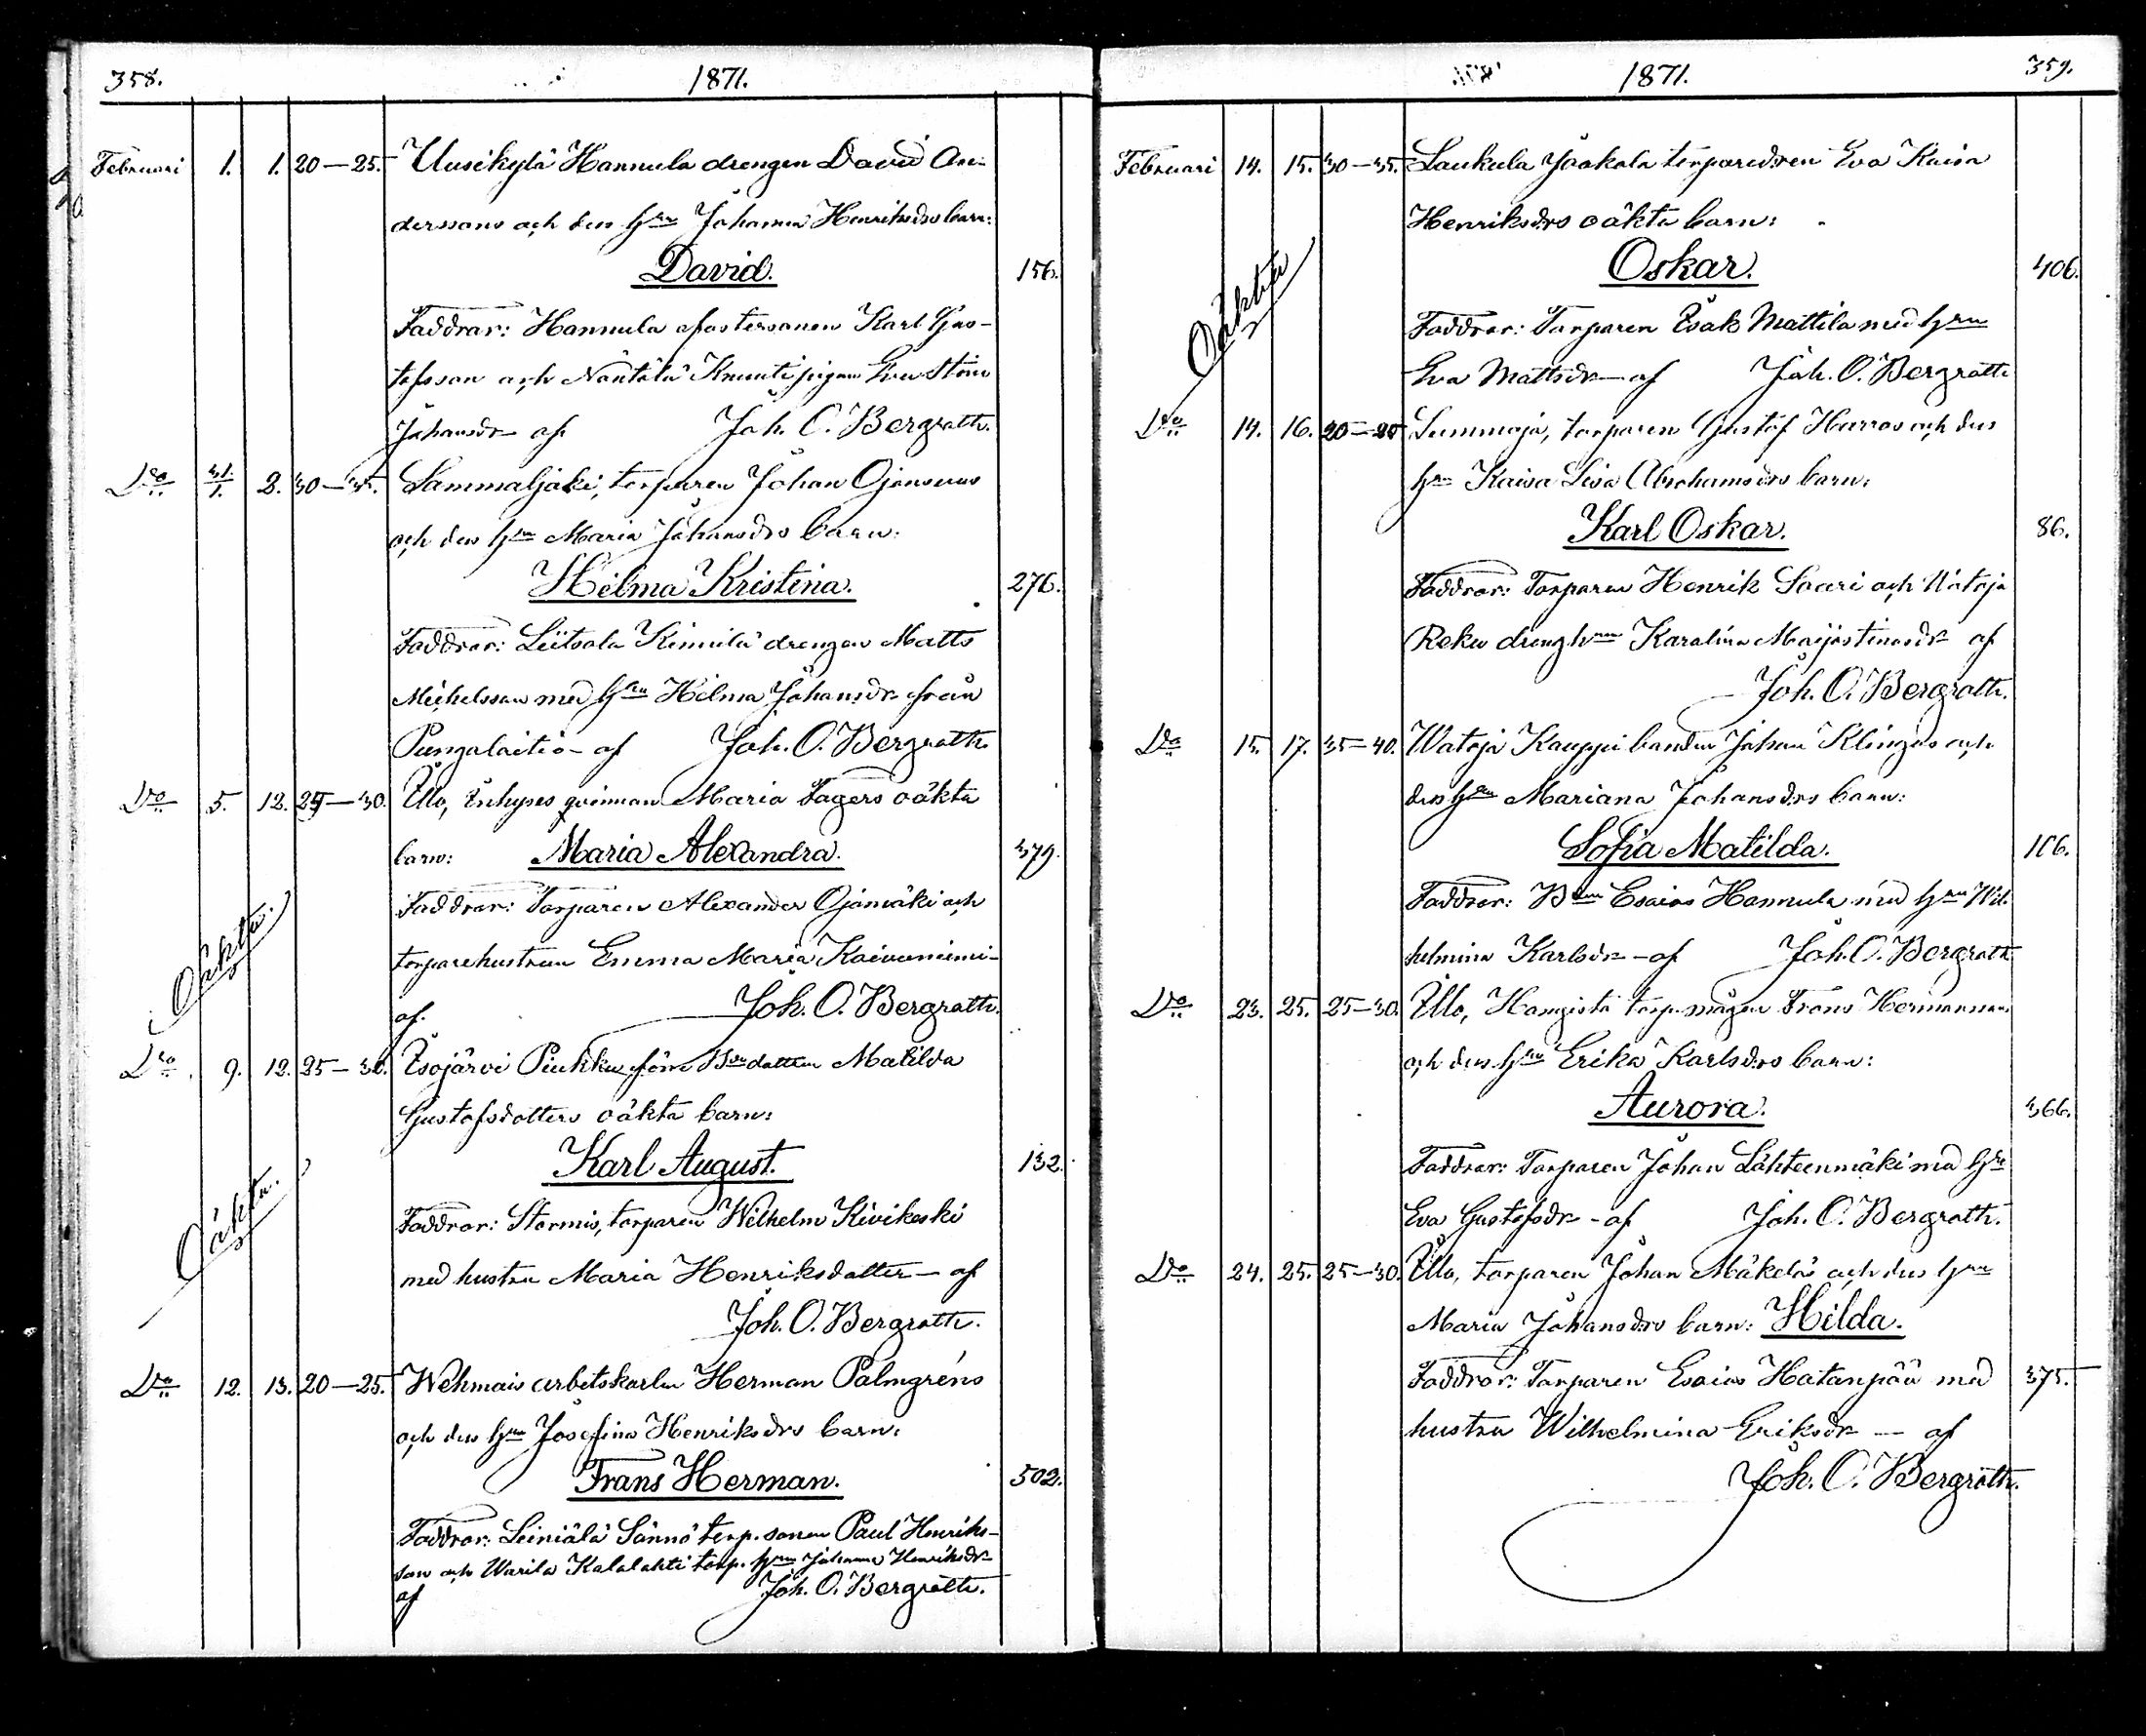 358. 1871.
Februari 1. 1. 20—25. Uusikylä Hannula drengen David An-
derssons och dess Hru Johanna Henriksdrs barn:
David. 156.
Faddrar: Hannula fostersonen Karl Gus-
tafsson och Näntälä Knuuti pigan Eva Stina
Johansdr af Joh. O. Bergroth.
Do 31/1. 2. 30—35. Sammaljoki, torparen Johan Ojansuus
och dess Hru Maria Johansdrs barn:
Hilma Kristina. 276.
Faddrar: Liitsola Kimilä drengen Matts
Michelsson med Hru Hilma Johansdr från
Pungalaitio - af Joh. O. Bergroth.
Do 5. 12. 25—30. Illo, Inhyses qvinnan Maria Fagers oäkta
barn: Maria Alexandra. 379.
Faddrar: Torparen Alexander Ojanmäki och
Oäkta.
torparehustrun Emma Maria Kaivoniemi-
af. Joh. O. Bergroth.
Do 9. 12. 25—30. Isojärvi Piukku förre Bdedottern Matilda
Gustafsdotters oäkta barn:
Karl August. 132.
Oäkta.
Faddrar: Stormis, torparen Wilhelm Kivikoski
med hustru Maria Henriksdotter — af
Joh. O. Bergroth.
Do 12. 13. 20—25. Wehmais arbetskarlen Herman Palmgréns
och dess Hru Josefina Henriksdrs barn:
Frans Herman. 502.
Faddrar: Leiniälä Sännö torp. sonen Paul Henriks-
son och Warila Kalalahti torp. Hru Johanna Henriksdr
af Joh. O. Bergroth.
1871. 359.
Februari 14. 15. 30—35. Laukula Jaakola torparedren Eva Kaisa
Henriksdrs oäkta barn:
Oskar. 406.
Oäkta
Faddrar: Torparen Isak Mattila med Hru
Eva Mattsdr — af Joh. O. Bergroth.
Do 14. 16. 20—25 Summaja, torparen Gustaf Harros och dess
Hru Kaisa Lisa Abrahamsdrs barn:
Karl Oskar. 86.
Faddrar: Torparen Henrik Saari och Wataja
Reku dreng hrun Karolina Maijastinasdr af
Joh. O. Bergroth.
Do 15. 17. 35—40. Wataja Kauppi bonden Johan Klingas och
dess Hru Mariana Johansdrs barn:
Sofia Matilda. 106.
Faddrar: Bden Esaias Hannula med Hru Wil-
helmina Karlsdr — af Joh. O. Bergroth
Do 23. 25. 25—30. Illo, Hangisto torp. mågen Frans Hermanssons
och dess Hru Erika Karlsdrs barn:
Aurora. 366.
Faddrar: Torparen Johan Lähteenmäki med Hru
Eva Gustafsdr - af Joh. O. Bergroth.
Do 24. 25. 25—30. Illo, torparen Johan Mäkeläs och dess Hru
Maria Johansdrs barn: Hilda.
Faddrar: Torparen Esaias Hatanpää med 375.
hustru Wilhelmina Eriksdr — af
Joh. O. Bergroth.